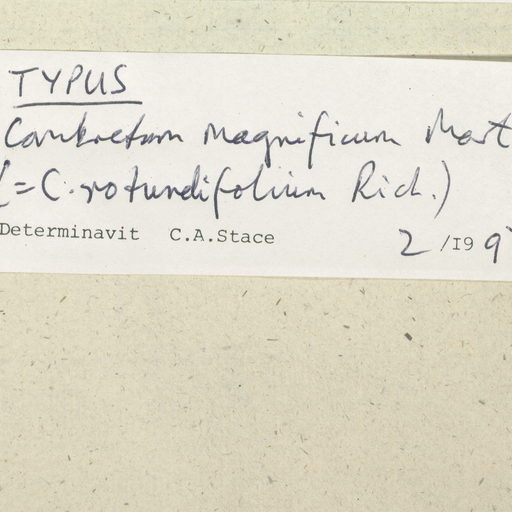 TYPUS
Combretum magnificum Mart
(= C. rotundifolium Rich.)
Determinavit C.A.Stace
2 /I9 9